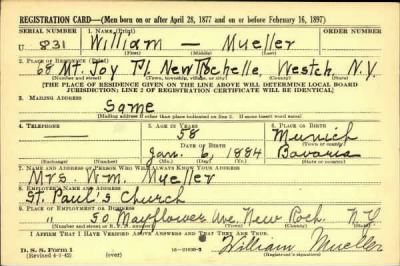 REGISTRATION CARD—(Men born on or after April 28, 1877 and on or before February 16, 1897)
SERIAL NUMBER 1. NAME (Print) ORDER NUMBER
U 831 William — Mueller
(First) (Middle) (Last)
2. PLACE OF RESIDENCE (Print)
68 Mt. Joy Pl New Rochelle, Westch, N.Y.
(Number and street) (Town, township, village, or city) (County) (State)
[THE PLACE OF RESIDENCE GIVEN ON THE LINE ABOVE WILL DETERMINE LOCAL BOARD
JURISDICTION; LINE 2 OF REGISTRATION CERTIFICATE WILL BE IDENTICAL]
3. MAILING ADDRESS
Same
[Mailing address if other than place indicated on line 2. If same insert word same]
4. TELEPHONE 5. AGE IN YEARS 6. PLACE OF BIRTH
— 58 Munich
DATE OF BIRTH (Town or county)
Jan. 6, 1884 Bavaria
(Exchange) (Number) (Mo.) (Day) (Yr.) (State or country)
7. NAME AND ADDRESS OF PERSON WHO WILL ALWAYS KNOW YOUR ADDRESS
Mrs. Wm. Mueller
8. EMPLOYER'S NAME AND ADDRESS
St. Paul's Church
9. PLACE OF EMPLOYMENT OR BUSINESS
" 50 Mayflower Ave. New Roch. N.Y.
(Number and street or R. F. D. number) (Town) (County) (State)
I AFFIRM THAT I HAVE VERIFIED ABOVE ANSWERS AND THAT THEY ARE TRUE.
D. S. S. Form 1
(Revised 4-1-42) (over) William Mueller
(Registrant's signature)